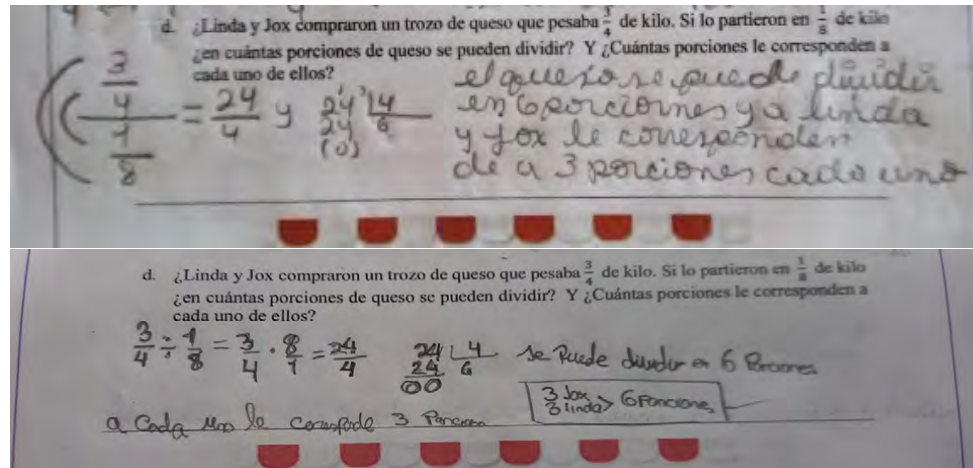 d. ¿Linda y Jox compraron un trozo de queso que pesaba 3/4 de kilo. Si lo partieron en 1/8 de kilo
¿en cuántas porciones de queso se pueden dividir? Y ¿Cuántas porciones le corresponden a
cada uno de ellos?
3/4 / 1/8 = 24/4 y 24 4
24 6
(0)
el queso se puede dividir
en 6 porciones y a linda
y Jox le corresponden
de a 3 porciones cada uno
d. ¿Linda y Jox compraron un trozo de queso que pesaba 3/4 de kilo. Si lo partieron en 1/8 de kilo
¿en cuántas porciones de queso se pueden dividir? Y ¿Cuántas porciones le corresponden a
cada uno de ellos?
3/4 ÷ 1/8 = 3/4 · 8/1 = 24/4 24 4 se Puede dividir en 6 Porciones
24 6
00
3 Jox
3 linda > 6 Porciones
a Cada uno le 3